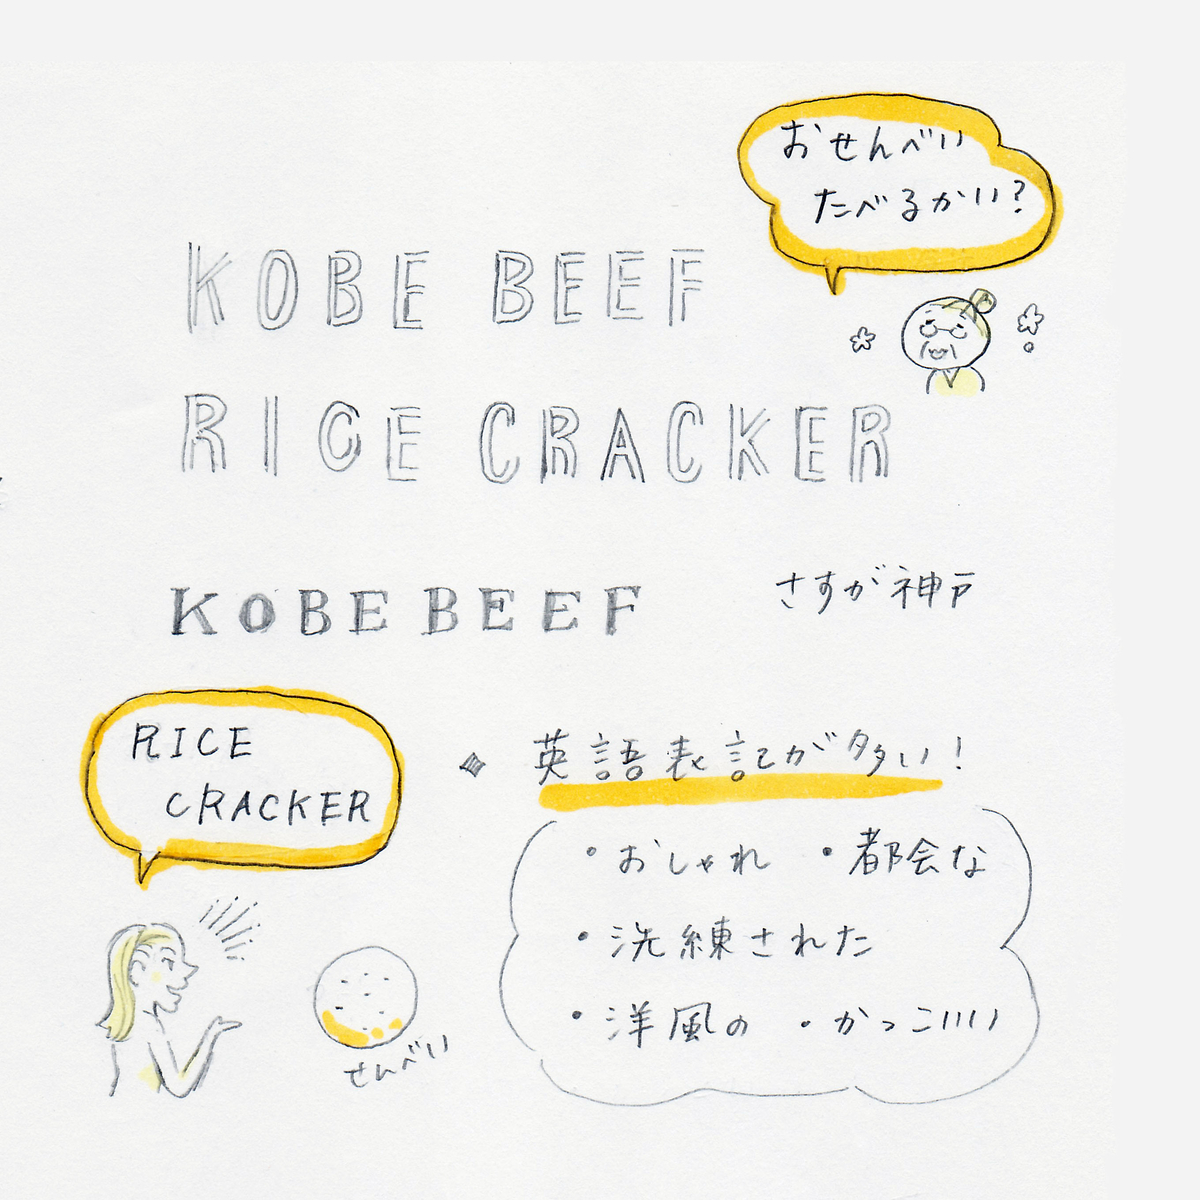 おせんべい
たべるかい?
KOBE BEEF
RICE CRACKER
KOBE BEEF
さすが神戸
RICE
CRACKER
英語表記が多い!
・おしゃれ ・都会な
・洗練された
・洋風の ・かっこいい
せんべい